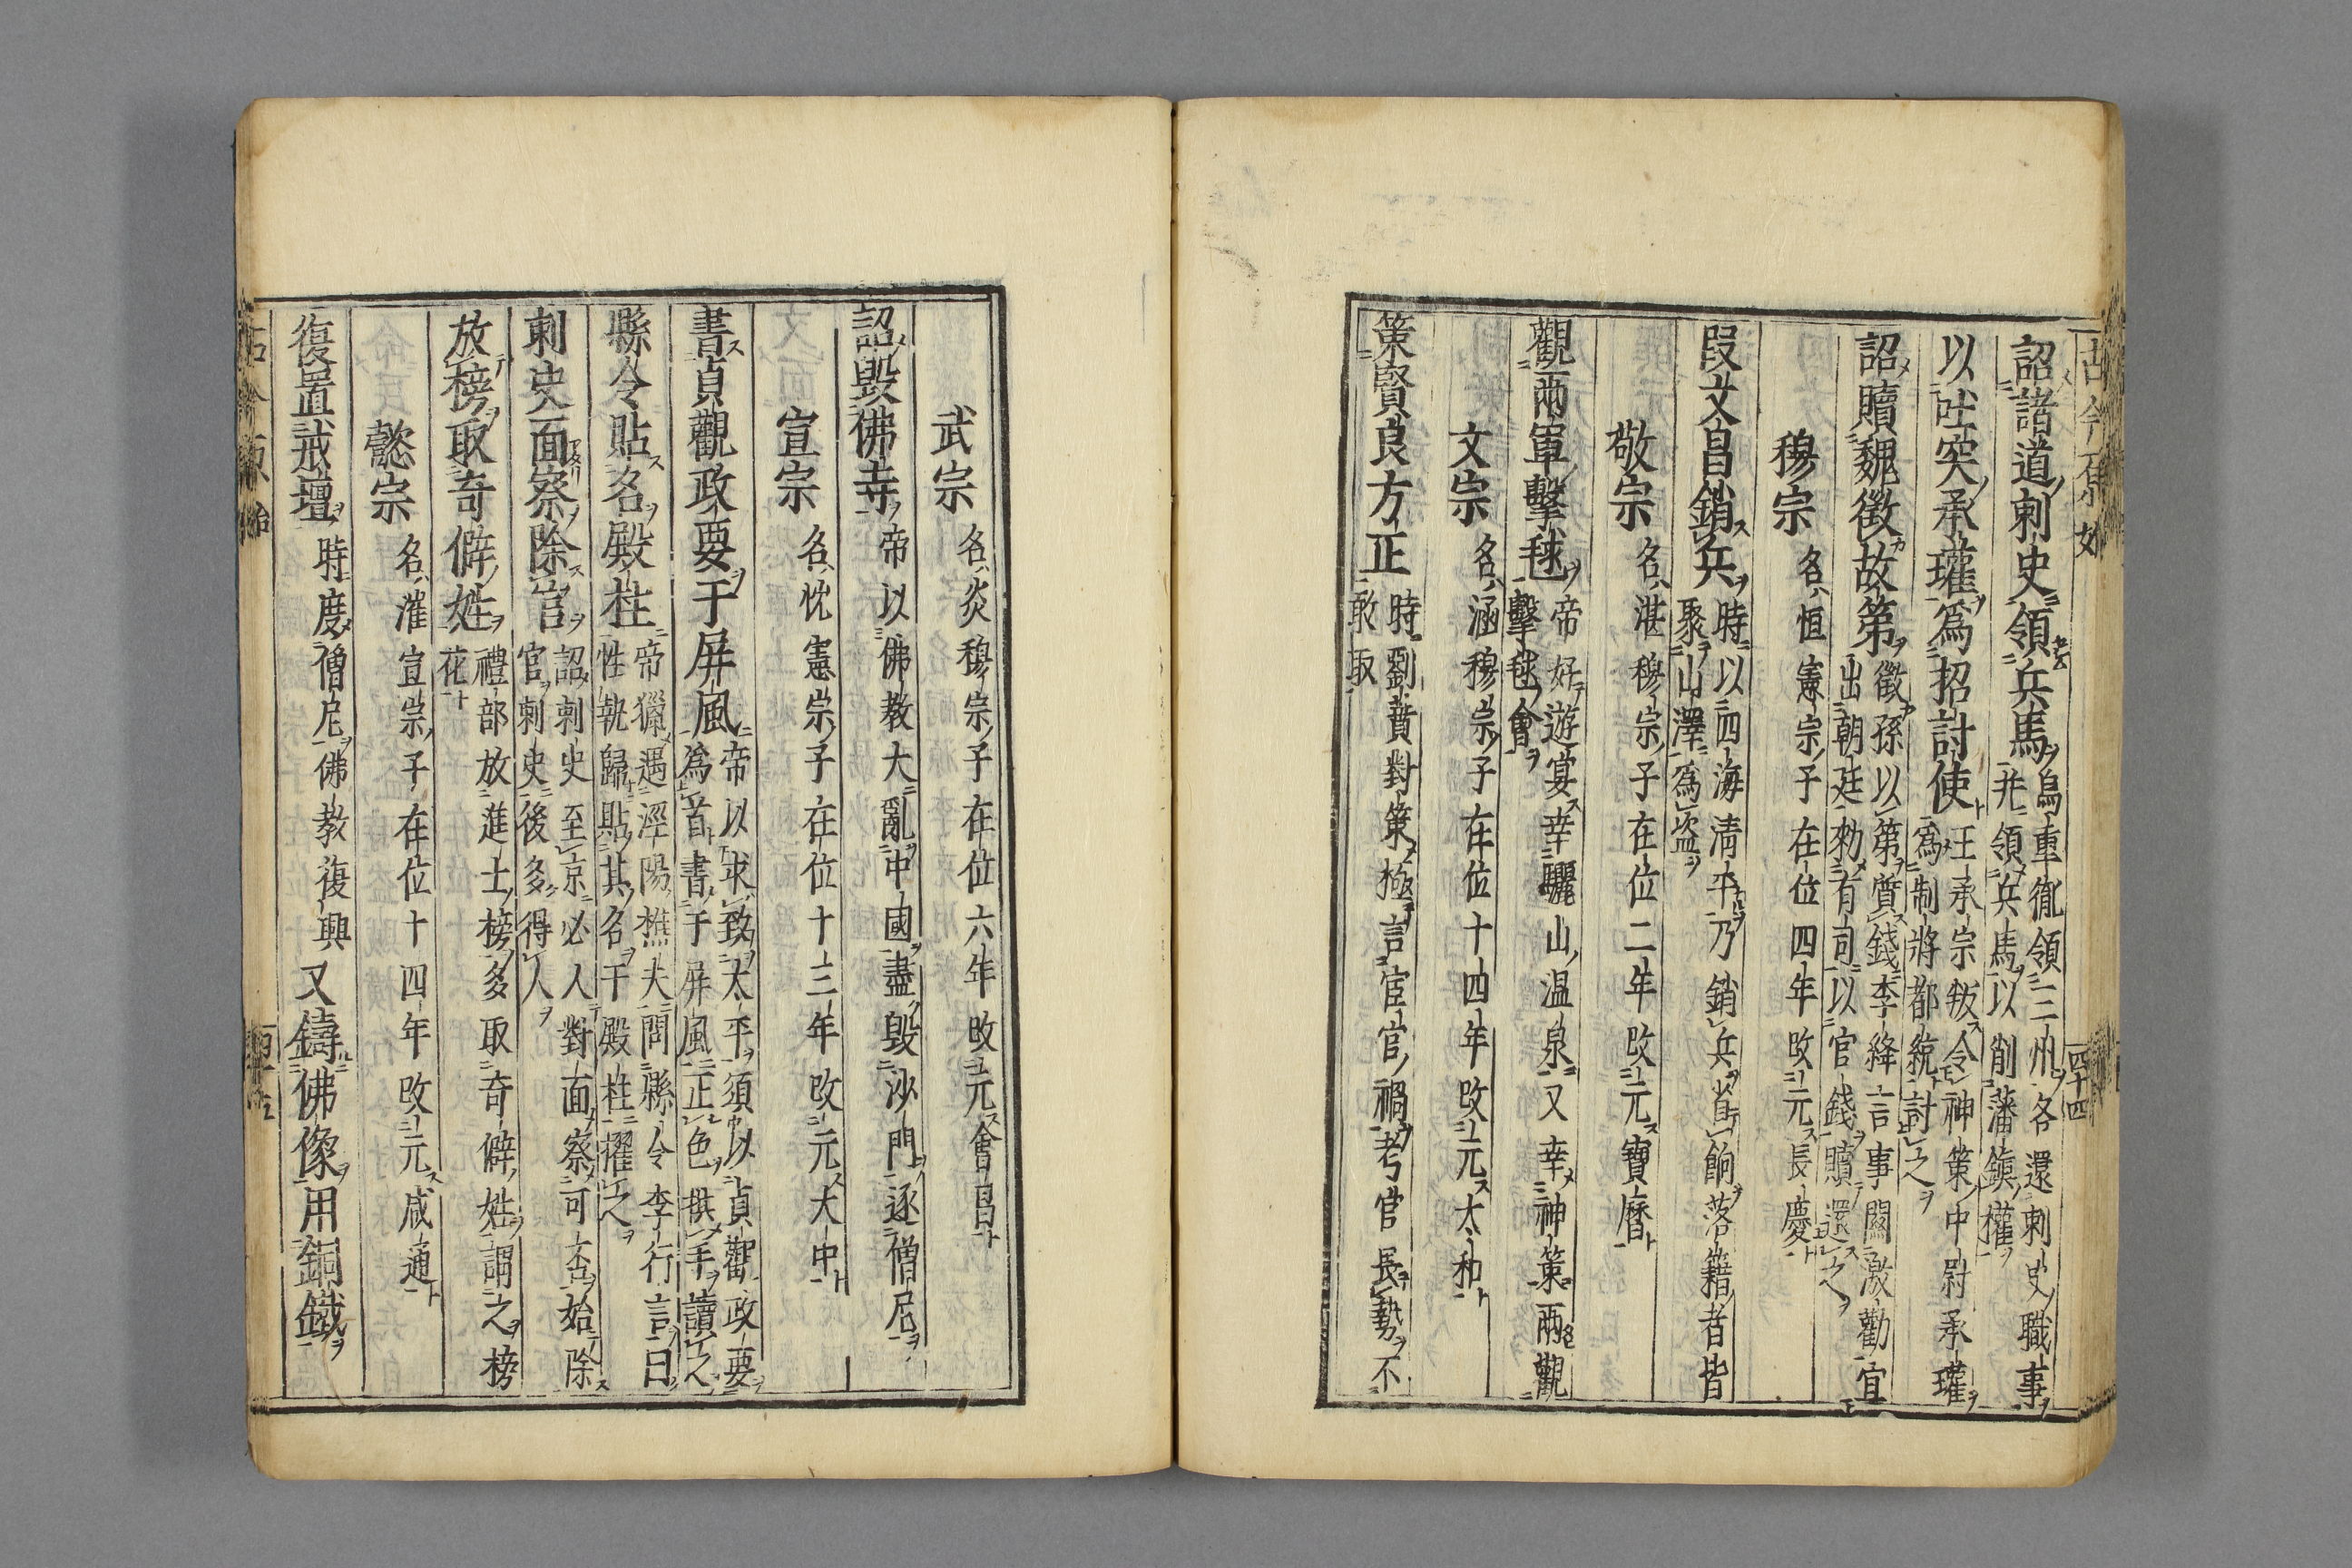 古今原始
四十四
詔諸道刺史領兵馬 烏重胤領三州各還刺史職事
并領兵馬以削藩鎮權
以吐突承璀爲招討使 王承宗叛令神策中尉承璀
爲制將都統討之
詔贖魏徵故第 徵孫以第質錢李絳言事關激勸宜
出朝廷勑有司以官錢贖還之
穆宗 名恒憲宗子在位四年改元長慶
段文昌銷兵 時以四海淸平乃銷兵省餉落籍者皆
聚山澤爲盗
敬宗 名湛穆宗子在位二年改元寶曆
觀兩軍擊毬 帝好遊宴幸驪山温泉又幸神策兩觀
擊毬會
文宗 名涵穆宗子在位十四年改元太和
策賢良方正 時劉蕡對策極言宦官禍考官長勢不
敢取
武宗 名炎穆宗子在位六年改元會昌
詔毀佛寺 帝以佛教大亂中國盡毀沙門逐僧尼
宣宗 名忱憲宗子在位十三年改元大中
書貞觀政要于屏風 帝以求致太平須以貞觀政要
爲首書于屏風正色拱手讀之
縣令貼名殿柱 帝獵遇涇陽樵夫問縣令李行言曰
性執歸貼其名于殿柱擢之
刺史面察除官 詔刺史至京必人對面察可否始除
官刺史後多得人
放榜取奇僻姓 禮部放進士榜多取奇僻姓謂之榜
花
懿宗 名漼宣宗子在位十四年改元咸通
復置戒壇 時度僧尼佛教復興 又鑄佛像用銅鐵
古今原始